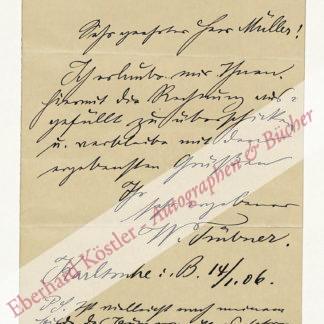 Sehr geehrter Herr Müller!
Ich erlaube mir Ihnen
hiermit die Rechnung aus-
gefüllt zu überschicken
u. verbleibe mit den
ergebensten Grüßen
Ihr
sehr ergebener
W. Trübner.
Karlsruhe i. B. 14/1.06.
P.S. Ist vielleicht nach meinem
Eberhard Köstler Autographen & Bücher